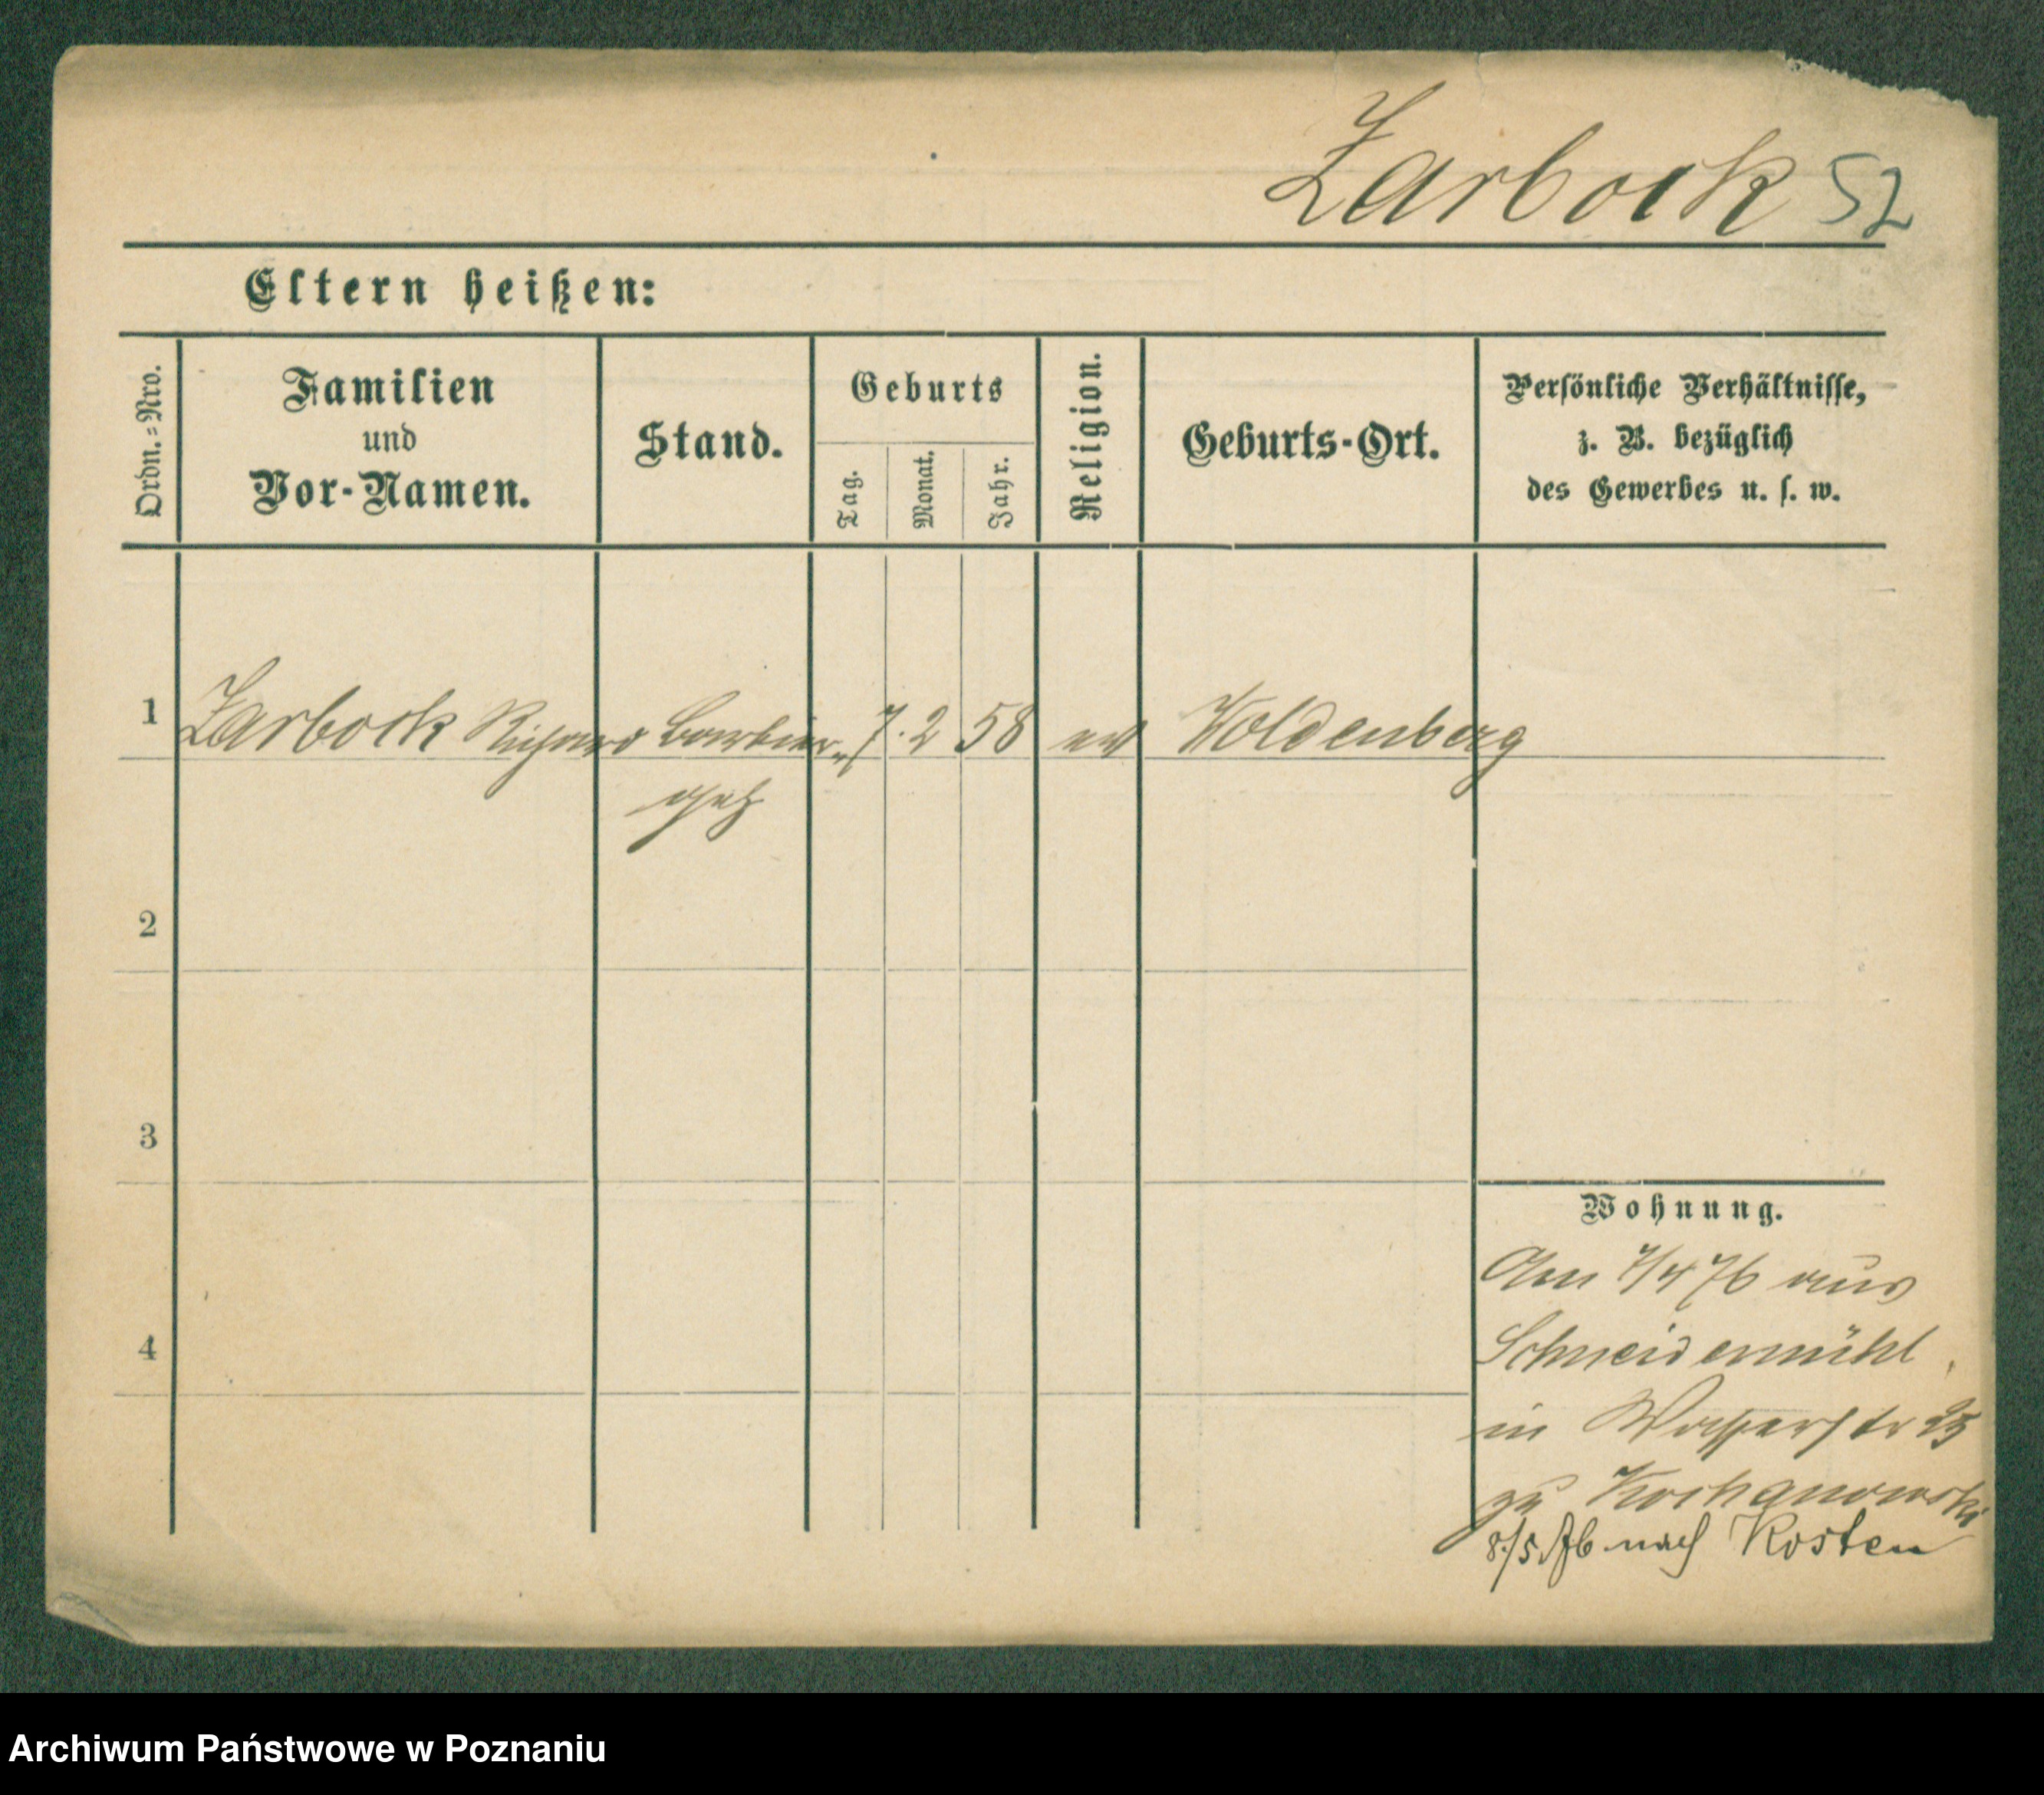 Zarbock 52
Eltern heißen:
Ordn.=Nro.
Familien
und
Vor-Namen.
Stand.
Geburts
Tag.
Monat.
Jahr.
Religion.
Geburts-Ort.
Persönliche Verhältnisse,
z. B. bezüglich
des Gewerbes u. s. w.
1 Zarbock Richard Barbier- 7. 2 58 ev Woldenberg
geh
2
3
4
Wohnung.
Am 7/4 76 aus
Schneidemühl
in Wasserstr 25
zu Kochanowski
8/5 76 nach Kosten
Archiwum Państwowe w Poznaniu